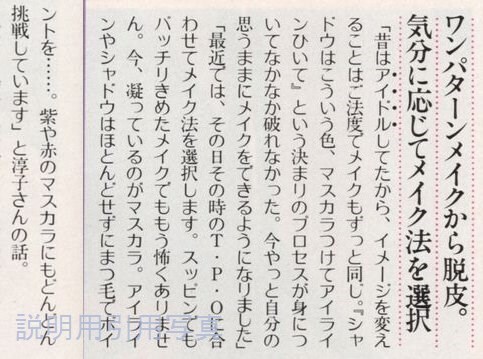 ワンパターンメイクから脱皮。
気分に応じてメイク法を選択
「昔はアイドルしてたから、イメージを変え
ることはご法度でメイクもずっと同じ。『シャ
ドウはこういう色、マスカラつけてアイライ
ンひいて』という決まりのプロセスが身につ
いてなかなか破れなかった。今やっと自分の
思うままにメイクをできるようになりました」
「最近では、その日その時のT・P・Oに合
わせてメイク法を選択します。スッピンでも
バッチリきめたメイクでももう怖くありませ
ん。今、凝っているのがマスカラ。アイライ
ンやシャドウはほとんどせずにまつ毛でポイ
ントを……。紫や赤のマスカラにもどんどん
挑戦しています」と淳子さんの話。
説明用引用写真